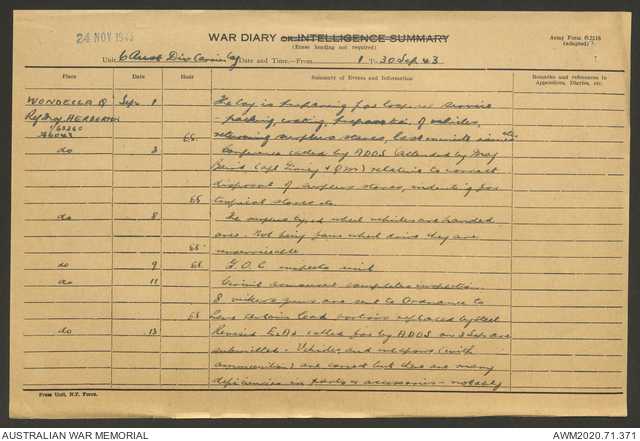 24 NOV 1943
WAR DIARY or INTELLIGENCE SUMMARY
(Erase heading not required)
Army Form C.2118
(adapted)
Unit 6 Aust Div Carrier Coy Date and Time.—From 1 To 30 Sep 43
Place Date Hour Summary of Events and Information Remarks and references to
Appendices, Diaries, etc.
WONDECLA Q Sep 1 The Coy is preparing for tropical service
Ref Map HERBERTON - packing, crating, of vehicles,
1/63360
366043 returning surplus stores, last minute issues etc
do 3 Conference called by ADOS (attended by Maj
Baird, Capt & QM) relative to correct
disposal of surplus stores, indenting for
tropical stores etc
do 8 The surplus typed wheel vehicles are handed
over. Not being four wheel drive they are
unserviceable
do 9 G.O.C inspects unit
do 11 armourer completes inspection.
8 vickers guns are sent to Ordnance to
have certain lead portions replaced by steel
do 13 Revised called for by ADOS on 3 Sep are
submitted. Vehicles and weapons (with
ammunition) are correct but there are many
deficiencies in parts & accessories - notably
Press Unit, N.T. Force.
AUSTRALIAN WAR MEMORIAL AWM2020.71.371